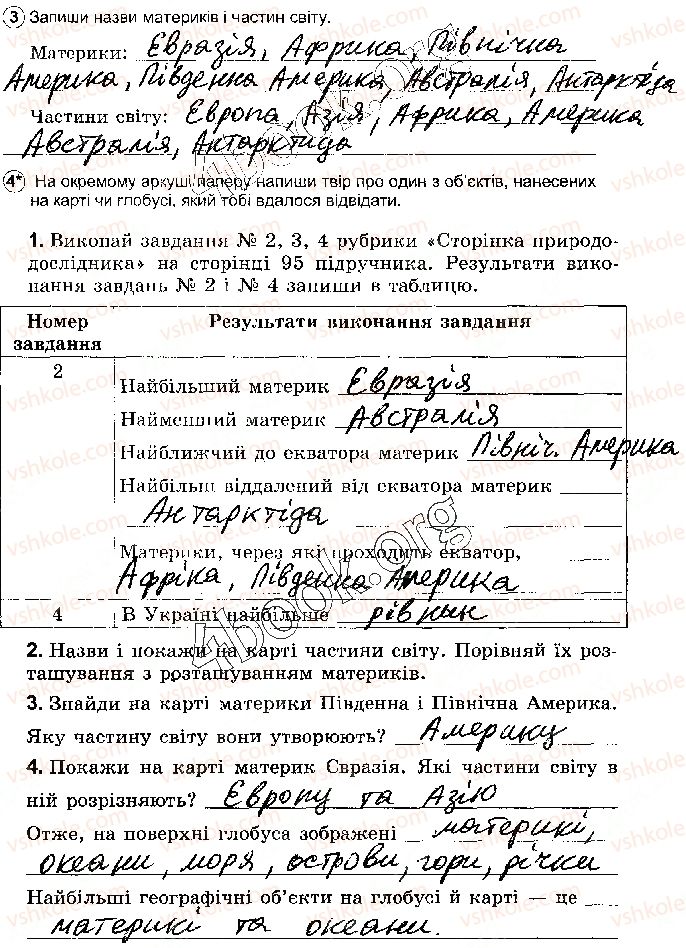 3 Запиши назви материків і частин світу.
Материки: Євразія, Африка, Північна
Америка, Південна Америка, Австралія, Антарктіда
Частини світу: Європа, Азія, Африка, Америка
Австралія, Антарктида
4* На окремому аркуші паперу напиши твір про один з об'єктів, нанесених
на карті чи глобусі, який тобі вдалося відвідати.
1. Виконай завдання № 2, 3, 4 рубрики «Сторінка природо-
дослідника» на сторінці 95 підручника. Результати вико-
нання завдань № 2 і № 4 запиши в таблицю.
Номер завдання Результати виконання завдання
2
Найбільший материк Євразія
Найменший материк Австралія
Найближчий до екватора материк Північ. Америка
Найбільш віддалений від екватора материк
Антарктіда
Материки, через які проходить екватор,
Афріка, Південна Америка
4 В Україні найбільше рівнин
2. Назви і покажи на карті частини світу. Порівняй їх роз-
ташування з розташуванням материків.
3. Знайди на карті материки Південна і Північна Америка.
Яку частину світу вони утворюють? Америку
4. Покажи на карті материк Євразія. Які частини світу в
ній розрізняють? Європу та Азію
Отже, на поверхні глобуса зображені материкі,
океани, моря, острови, гори, річки
Найбільші географічні об'єкти на глобусі й карті — це
материкі та океани.
4book.org
4book.org
vshkole.com